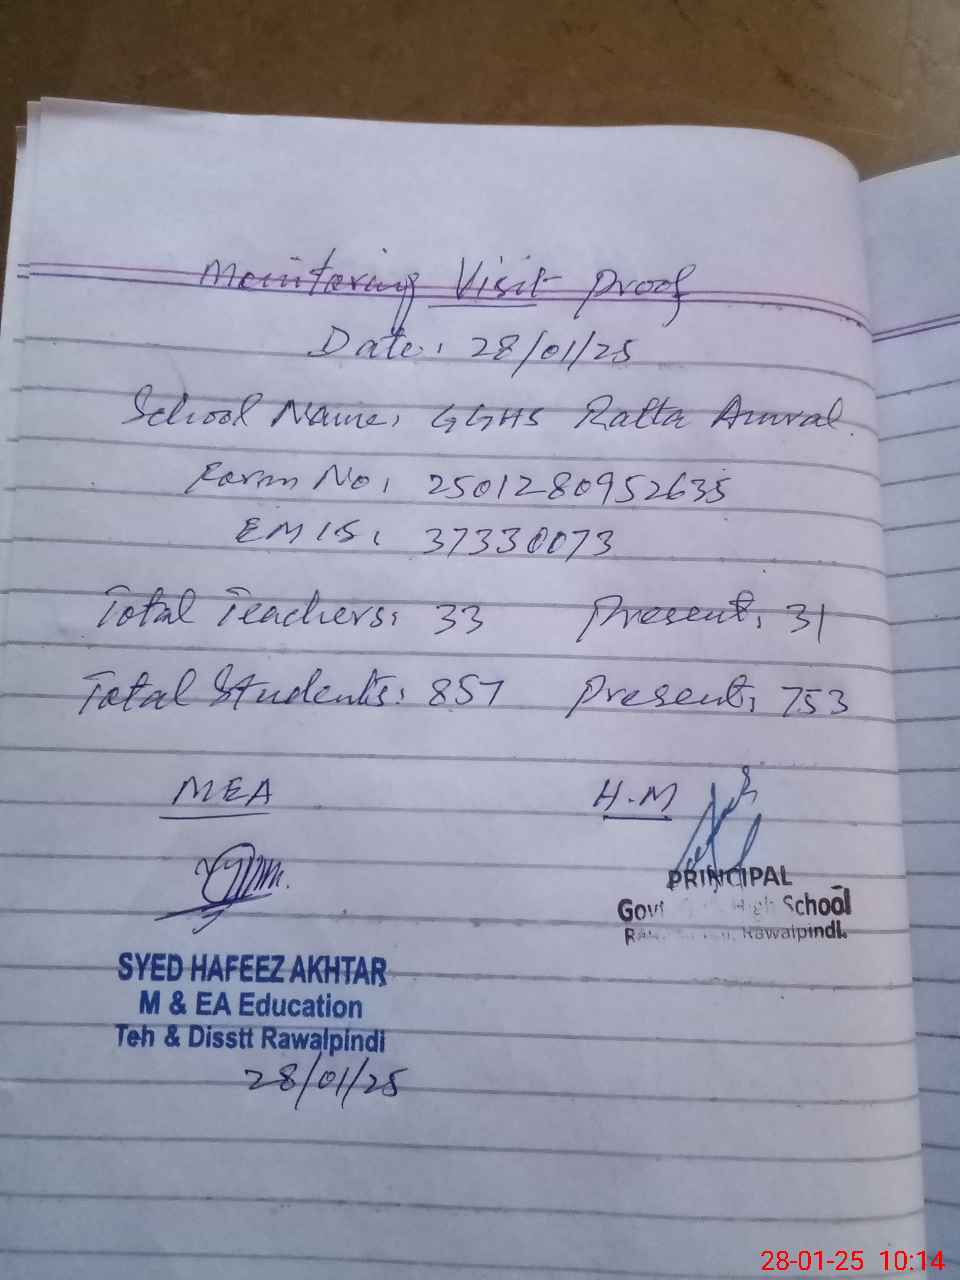 Monitoring Visit Proof
Date: 28/01/25
School Name: GGHS Ratta Amral
Form No: 2501280952635
EMIS: 37330073
Total Teachers: 33 Present: 31
Total Students: 857 Present: 753
MEA H.M
PRINCIPAL
Govt High School
Rawalpindi.
SYED HAFEEZ AKHTAR
M & EA Education
Teh & Disstt Rawalpindi
28/01/25
28-01-25 10:14